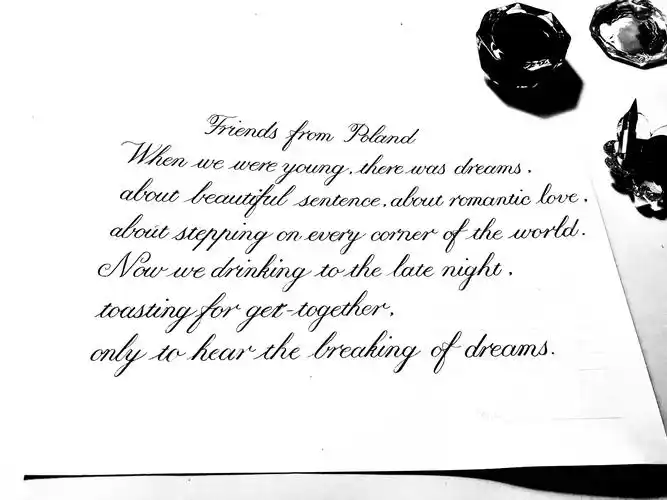 Friends from Poland
When we were young, there was dreams,
about beautiful sentence, about romantic love,
about stepping on every corner of the world.
Now we drinking to the late night,
toasting for get-together,
only to hear the breaking of dreams.